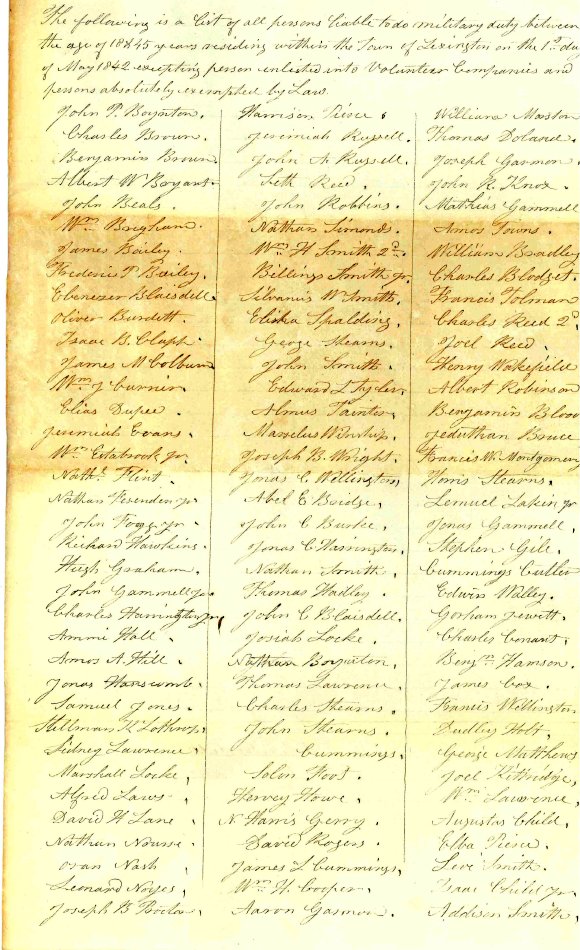 The following is a list of all persons liable to do military duty between
the age of 18 & 45 years residing within the Town of Lexington on the 1st day
of May 1842 excepting person enlisted into Volunteer Companies and
persons absolutely exempted by Law.
John P. Boynton.
Charles Brown.
Benjamin Brown
Albert W Bryant.
John Beals.
Wm Brigham.
James Bailey.
Frederic P. Bailey.
Ebenezer Blaisdell.
Oliver Burdett.
Isaac B. Clapp.
James M Colburn
Wm J Curner.
Elias Dupee.
Jeremiah Evans.
Wm Estabrook Jr.
Nathl Flint.
Nathan Fesenden Jr
John Fogg Jr.
Richard Hawkins.
Hugh Graham.
John Gammell Jr.
Charles Harrington Jr,
Ammi Hall.
Amos A. Hill.
Jonas
Samuel Jones.
Stillman K Lothrop,
Sidney Lawrence,
Marshall Locke,
Alfred Laws.
David H Lane.
Nathan Nourse.
Oran Nash,
Leonard Noyes,
Joseph B
Harrison Peirce.
Jeremiah Russell.
John A Russell.
Seth Reed.
John Robbins.
Nathan Simonds.
Wm H Smith 2d.
Billings Smith Jr.
Silvanis W Smith.
Elisha Spalding.
George Stearns.
John Smith.
Edward L Tyler.
Almus Tainter.
Marcelus Winship.
Joseph B. Wright.
Jonas C Wellington
Abel E Bridge,
John C Burke.
Jonas C Harrington.
Nathan Smith.
Thomas Hadley.
John C Blaisdell.
Josiah Locke.
Nathan Boynton,
Thomas Lawrence,
Charles Stearns.
John Stearns.
Cummings,
Solon
Hervey Howe,
N Harris Gerry.
David Rogers.
James L Cummings,
Wm H. Cooper.
Aaron Gasmon.
William Maston
Thomas Doland.
Joseph Garmon.
John R. Knox.
Mathias Gammell
Amos Towns.
William Bradley
Charles Blodget.
Francis Tolman
Charles Reed 2d.
Joel Reed.
Henry Wakefield
Albert Robinson
Benjamin Blood
Jeduthan Bruce
Francis W. Montgomery
Harris Stearns.
Lemuel Lakin Jr
Jonas Gammell.
Stephen Gill.
Cummings Cutler
Edwin Walley.
Gorham Jewitt.
Charles Conant.
Benjn Hanson.
James Cox.
Francis Wellington
Dudley Holt,
George Matthews
Joel Kittridge,
Wm Lawrence,
Augustas Child,
Elba Peirce.
Levi Smith.
Isaac Child Jr.
Addison Smith,